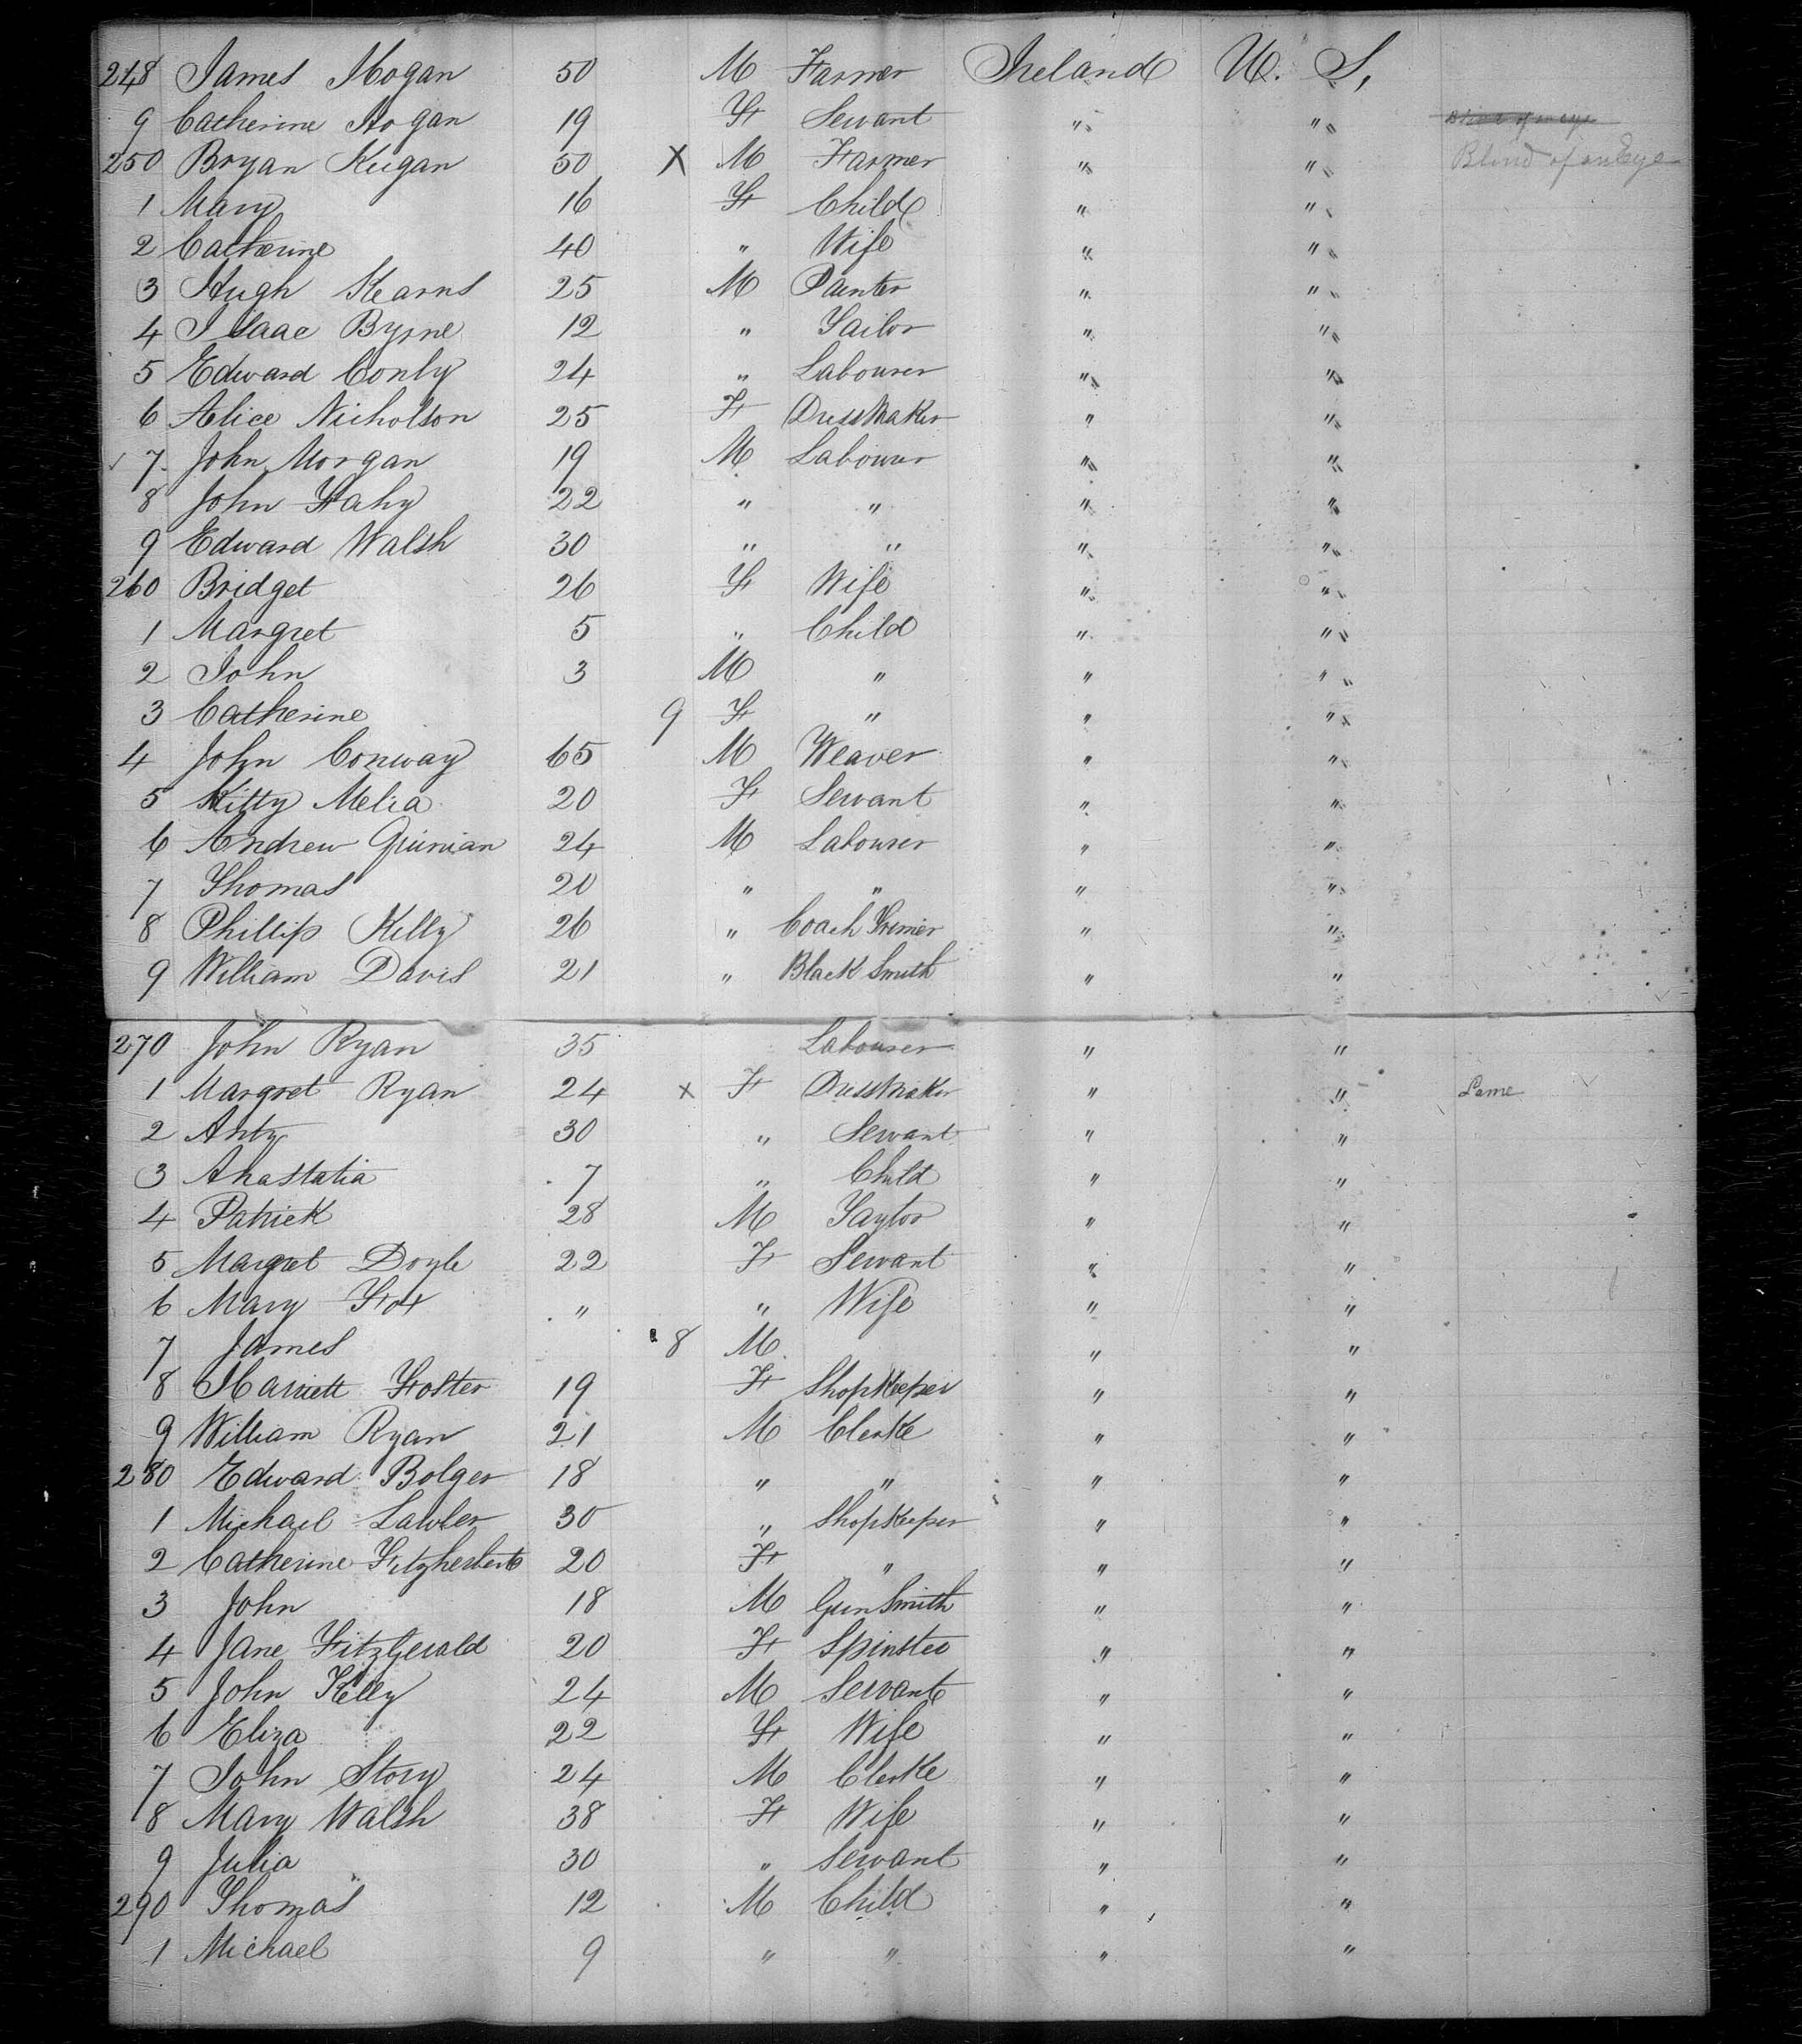 248 James Hogan 50 M Farmer Ireland U. S,
9 Catherine Hogan 19 F Servant " "
250 Bryan Keegan 50 X M Farmer " " Blind of an Eye
1 Mary 16 F Child " "
2 Catherine 40 " Wife " "
3 Hugh Kearns 25 M Painter " "
4 Isaac Byrne 12 " Sailor " "
5 Edward Conly 24 " Labourer " "
6 Alice Nicholson 25 F DressMaker " "
7 John Morgan 19 M Labourer " "
8 John Fahy 22 " " " "
9 Edward Walsh 30 " " " "
260 Bridget 26 F Wife " "
1 Margret 5 " Child " "
2 John 3 M " " "
3 Catherine 9 F " " "
4 John Conway 65 M Weaver " "
5 Kitty Melia 20 F Servant " "
6 Andrew 24 M Labourer " "
7 Thomas 20 " " " "
8 Phillip Kelly 26 " Coach Trimer " "
9 William Davis 21 " Black Smith " "
270 John Ryan 35 Labourer " "
1 Margret Ryan 24 x F DressMaker " " Lame
2 Anty 30 " Servant " "
3 Anastatia 7 " Child " "
4 Patrick 28 M Taylor " "
5 Margret Doyle 22 F Servant " "
6 Mary Fox " " Wife " "
7 James 8 M " "
8 Harriett Foster 19 F ShopKeeper " "
9 William Ryan 21 M Clerke " "
280 Edward Bolger 18 " " " "
1 Michael Lawler 30 " ShopKeeper " "
2 Catherine Fitzherbert 20 F " " "
3 John 18 M Gun Smith " "
4 Jane FitzGerald 20 F Spinster " "
5 John Kelly 24 M Servant " "
6 Eliza 22 F Wife " "
7 John Story 24 M Clerke " "
8 Mary Walsh 38 F Wife " "
9 Julia 30 " Servant " "
290 Thomas 12 M Child " "
1 Michael 9 " " " "